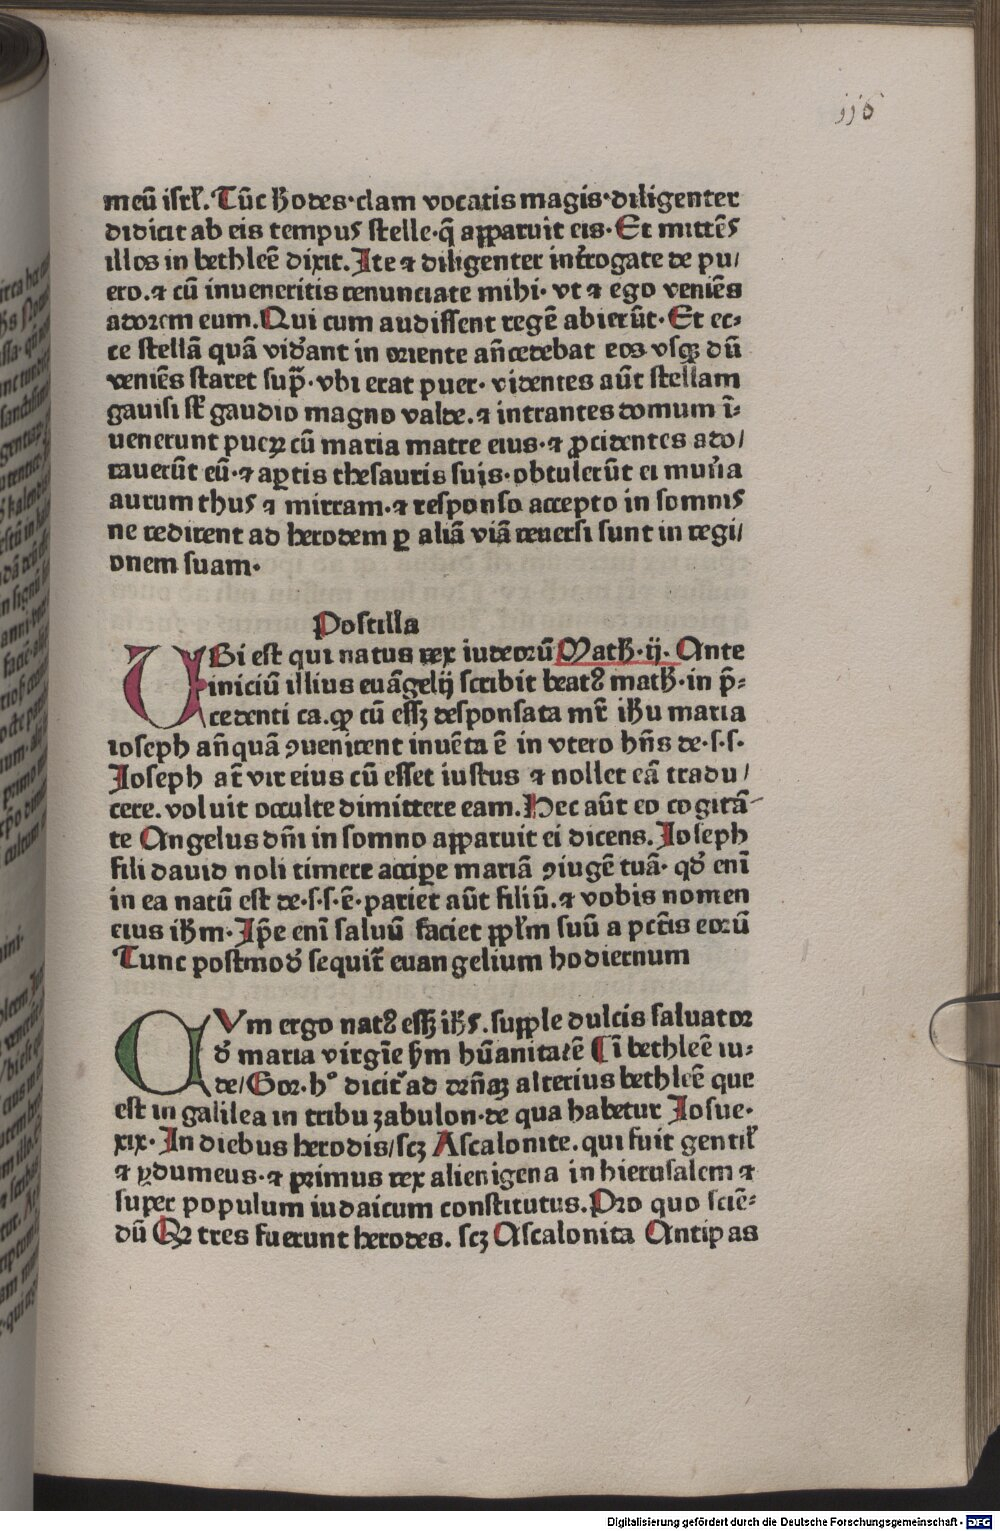 116
meū isrł. Tūc ħodes·clam vocatis magis·diligenter
didicit ab eis tempus stelle·q̄ apparuit eis·Et mittēs
illos in bethleē dixit. Ite ⁊ diligenter int̄rogate de pu/
ero.⁊ cū inueneritis renunciate mihi· vt ⁊ ego veniēs
adorem eum.Qui cum audissent regē abierūt·Et ec⸗
ce stellā quā viďant in oriente añcedebat eos vsqꝫ dū
veniēs staret sup̄·vbi erat puer· videntes aūt stellam
gauisi sť gaudio magno valde.⁊ intrantes domum ī⸗
uenerunt pueꝝ cū maria matre eius·⁊ ꝓcidentes ado/
rauerūt eū·⁊ aꝑtis thesauris suis·obtulerūt ei mun̄a
aurum thus ⁊ mirram·⁊ responso accepto in somnis
ne redirent ad herodem ꝑ aliā viā reuersi sunt in regi/
onem suam·
Postilla
UBi est qui natus rex iudeorū Math·ij. Ante
iniciū illius euāgelij scribit beatꝰ math·in p̄⸗
cedenti ca.ꝙ cū essꝫ desponsata mr̄ iħu maria
ioseph añquā ꝯuenirent inuēta ē in vtero hn̄s de·s·s·
Ioseph at̄ vir eius cū esset iustus ⁊ nollet eā tradu/
cere. voluit occulte dimittere eam.Hec aūt eo cogitā-
te Angelus dn̄i in somno apparuit ei dicens.Ioseph
fili dauid noli timere acciꝑe mariā ꝯiugē tuā· qď enī
in ea natū est de·s·s·ē·pariet aūt filiū.⁊ vobis nomen
eius iħm·Ip̄e enī saluū faciet ppłm suū a pctīs eorū
Tunc postmoď sequit̄ euangelium hodiernum
CVm ergo natꝰ essꝫ iħs.supple dulcis saluator
ď maria virgīe ẜm hūanitatē Cī bethleē iu⸗
de/Gor.hº dicit̄ ad drn̄aꝫ alterius bethleē que
est in galilea in tribu zabulon·de qua habetur Iosue·
xix·In diebus herodis/scꝫ Ascalonite.qui fuit gentił
⁊ ydumeus·⁊ primus rex alienigena in hierusalem ⁊
super populum iudaicum constitutus.Pro quo sciē⸗
dū Qꝫ tres fuerunt herodes. scꝫ Ascalonita Antipas
Digitalisierung gefördert durch die Deutsche Forschungsgemeinschaft · DFG